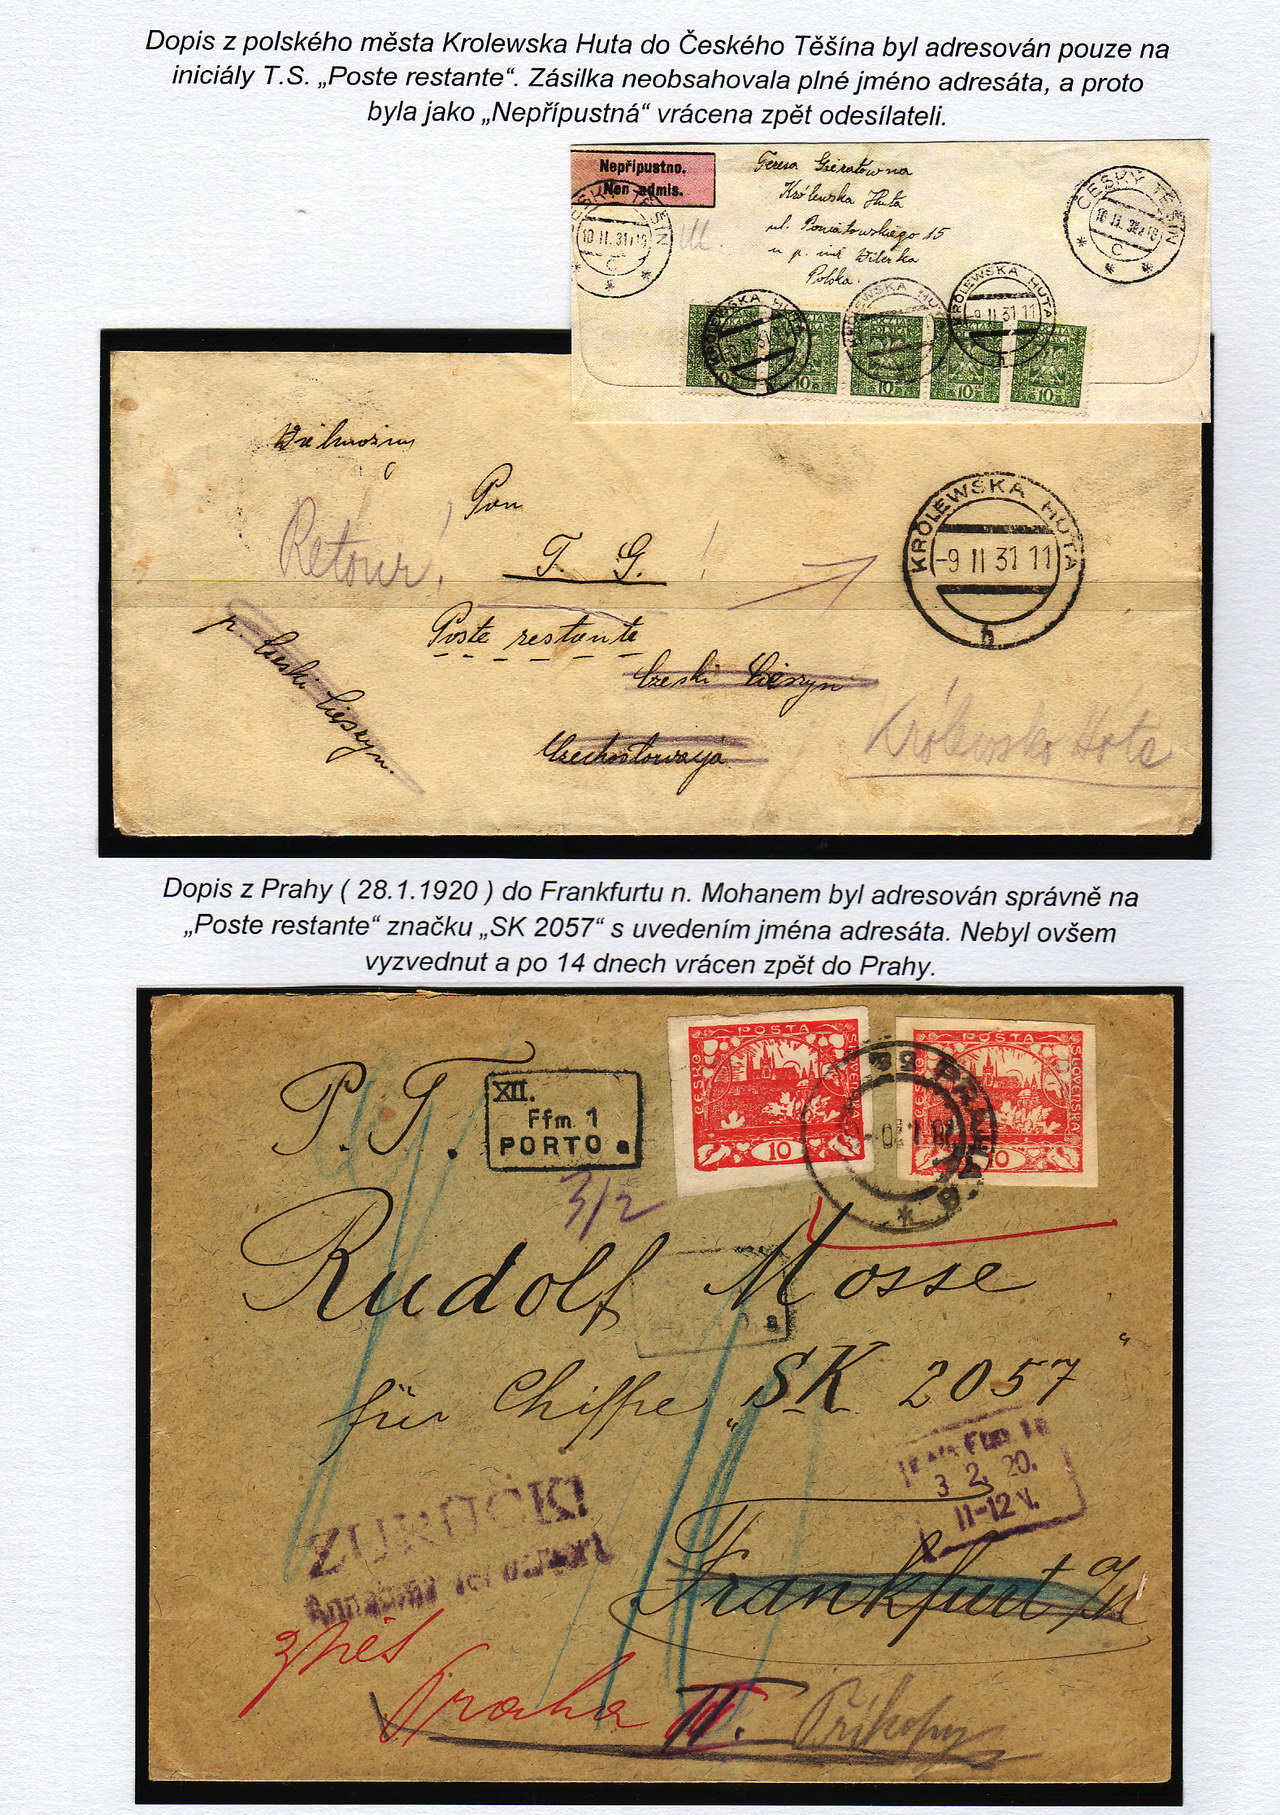 Dopis z polského města Krolewska Huta do Českého Těšína byl adresován pouze na
iniciály T.S. „Poste restante“. Zásilka neobsahovala plné jméno adresáta, a proto
byla jako „Nepřípustná“ vrácena zpět odesílateli.
Nepřípustno.
Non admis.
ČESKÝ TĚŠÍN
10 II. 31 18
C
Teresa
Królewska Huta
ul. Poniatowskiego 15
Polska.
ČESKÝ TĚŠÍN
10 II. 31 18
C
KRÓLEWSKA HUTA
KRÓLEWSKA HUTA
KRÓLEWSKA HUTA
-9 II 31 11
10
10
10
10
10
Pan
Retour!
T. G.
Poste restante
p. Czeski Cieszyn.
Czeski Cieszyn
Czechosłowacja
KRÓLEWSKA HUTA
-9 II 31 11
h
Królewsko Hóta
Dopis z Prahy ( 28.1.1920 ) do Frankfurtu n. Mohanem byl adresován správně na
„Poste restante“ značku „SK 2057“ s uvedením jména adresáta. Nebyl ovšem
vyzvednut a po 14 dnech vrácen zpět do Prahy.
P. T.
XII.
Ffm 1
PORTO a
3/2
POSTA
ČESKO SLOVENSKÁ
10
POSTA
ČESKO SLOVENSKÁ
PRAHA
Rudolf Mosse
für Chiffre „SK 2057“
3 2. 20.
11-12 V.
ZURÜCK!
Annahme verweigert
Frankfurt a/M
zpět
Praha II. Příkopy